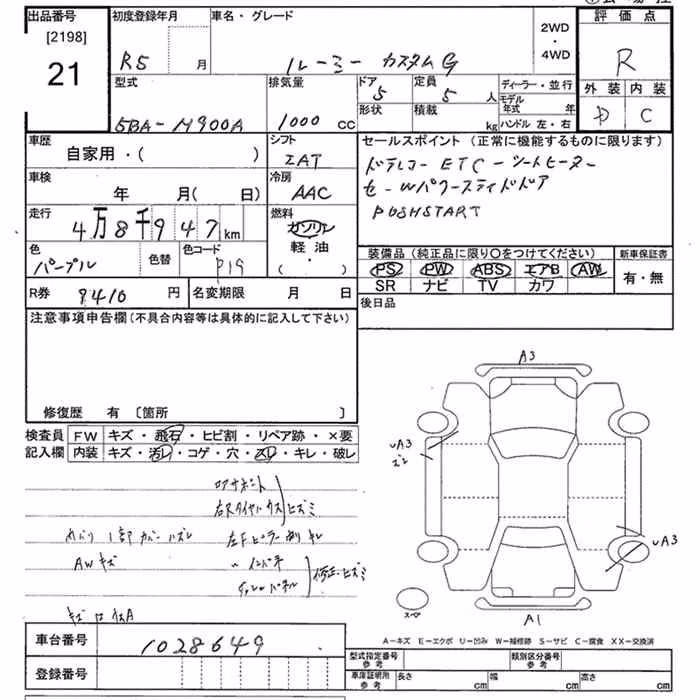 出品番号
[2198]
21
初度登録年月
R5 月
車名・グレード
ルーミー カスタムG
2WD
・
4WD
評価点
R
外装 内装
D C
型式
5BA-M900A
排気量
1000 CC
ドア
5
定員
5 人
形状
積載
kg
ディーラー・並行
モデル年式 年
ハンドル 左・右
車歴
自家用・( )
シフト
IAT
車検
年 月( 日)
冷房
AAC
走行
4万8千947km
燃料
ガソリン
軽油
( ・ )
色
パープル
色替
色コード
P19
R券 9410 円
名変期限 月 日
セールスポイント(正常に機能するものに限ります)
ドラレコー ETC シートヒーター
PUSHSTART
装備品(純正品に限り○をつけてください)
PS PW ABS エアB AW
SR ナビ TV カワ
新車保証書
有・無
後日品
注意事項申告欄(不具合内容等は具体的に記入して下さい)
修復歴 有〔箇所 〕
検査員
記入欄
FW キズ・飛石・ヒビ割・リペア跡・×要
内装 キズ・汚レ・コゲ・穴・スレ・キレ・破レ
AWキズ
A3
uA3
uA3
A1
スペア
A-キズ E-エクボ U-凹み W-補修跡 S-サビ C-腐食 XX-交換済
車台番号
1028649
登録番号
型式指定番号
参考
類別区分番号
参考
車庫証明所
参考
長さ cm
幅 cm
高さ cm